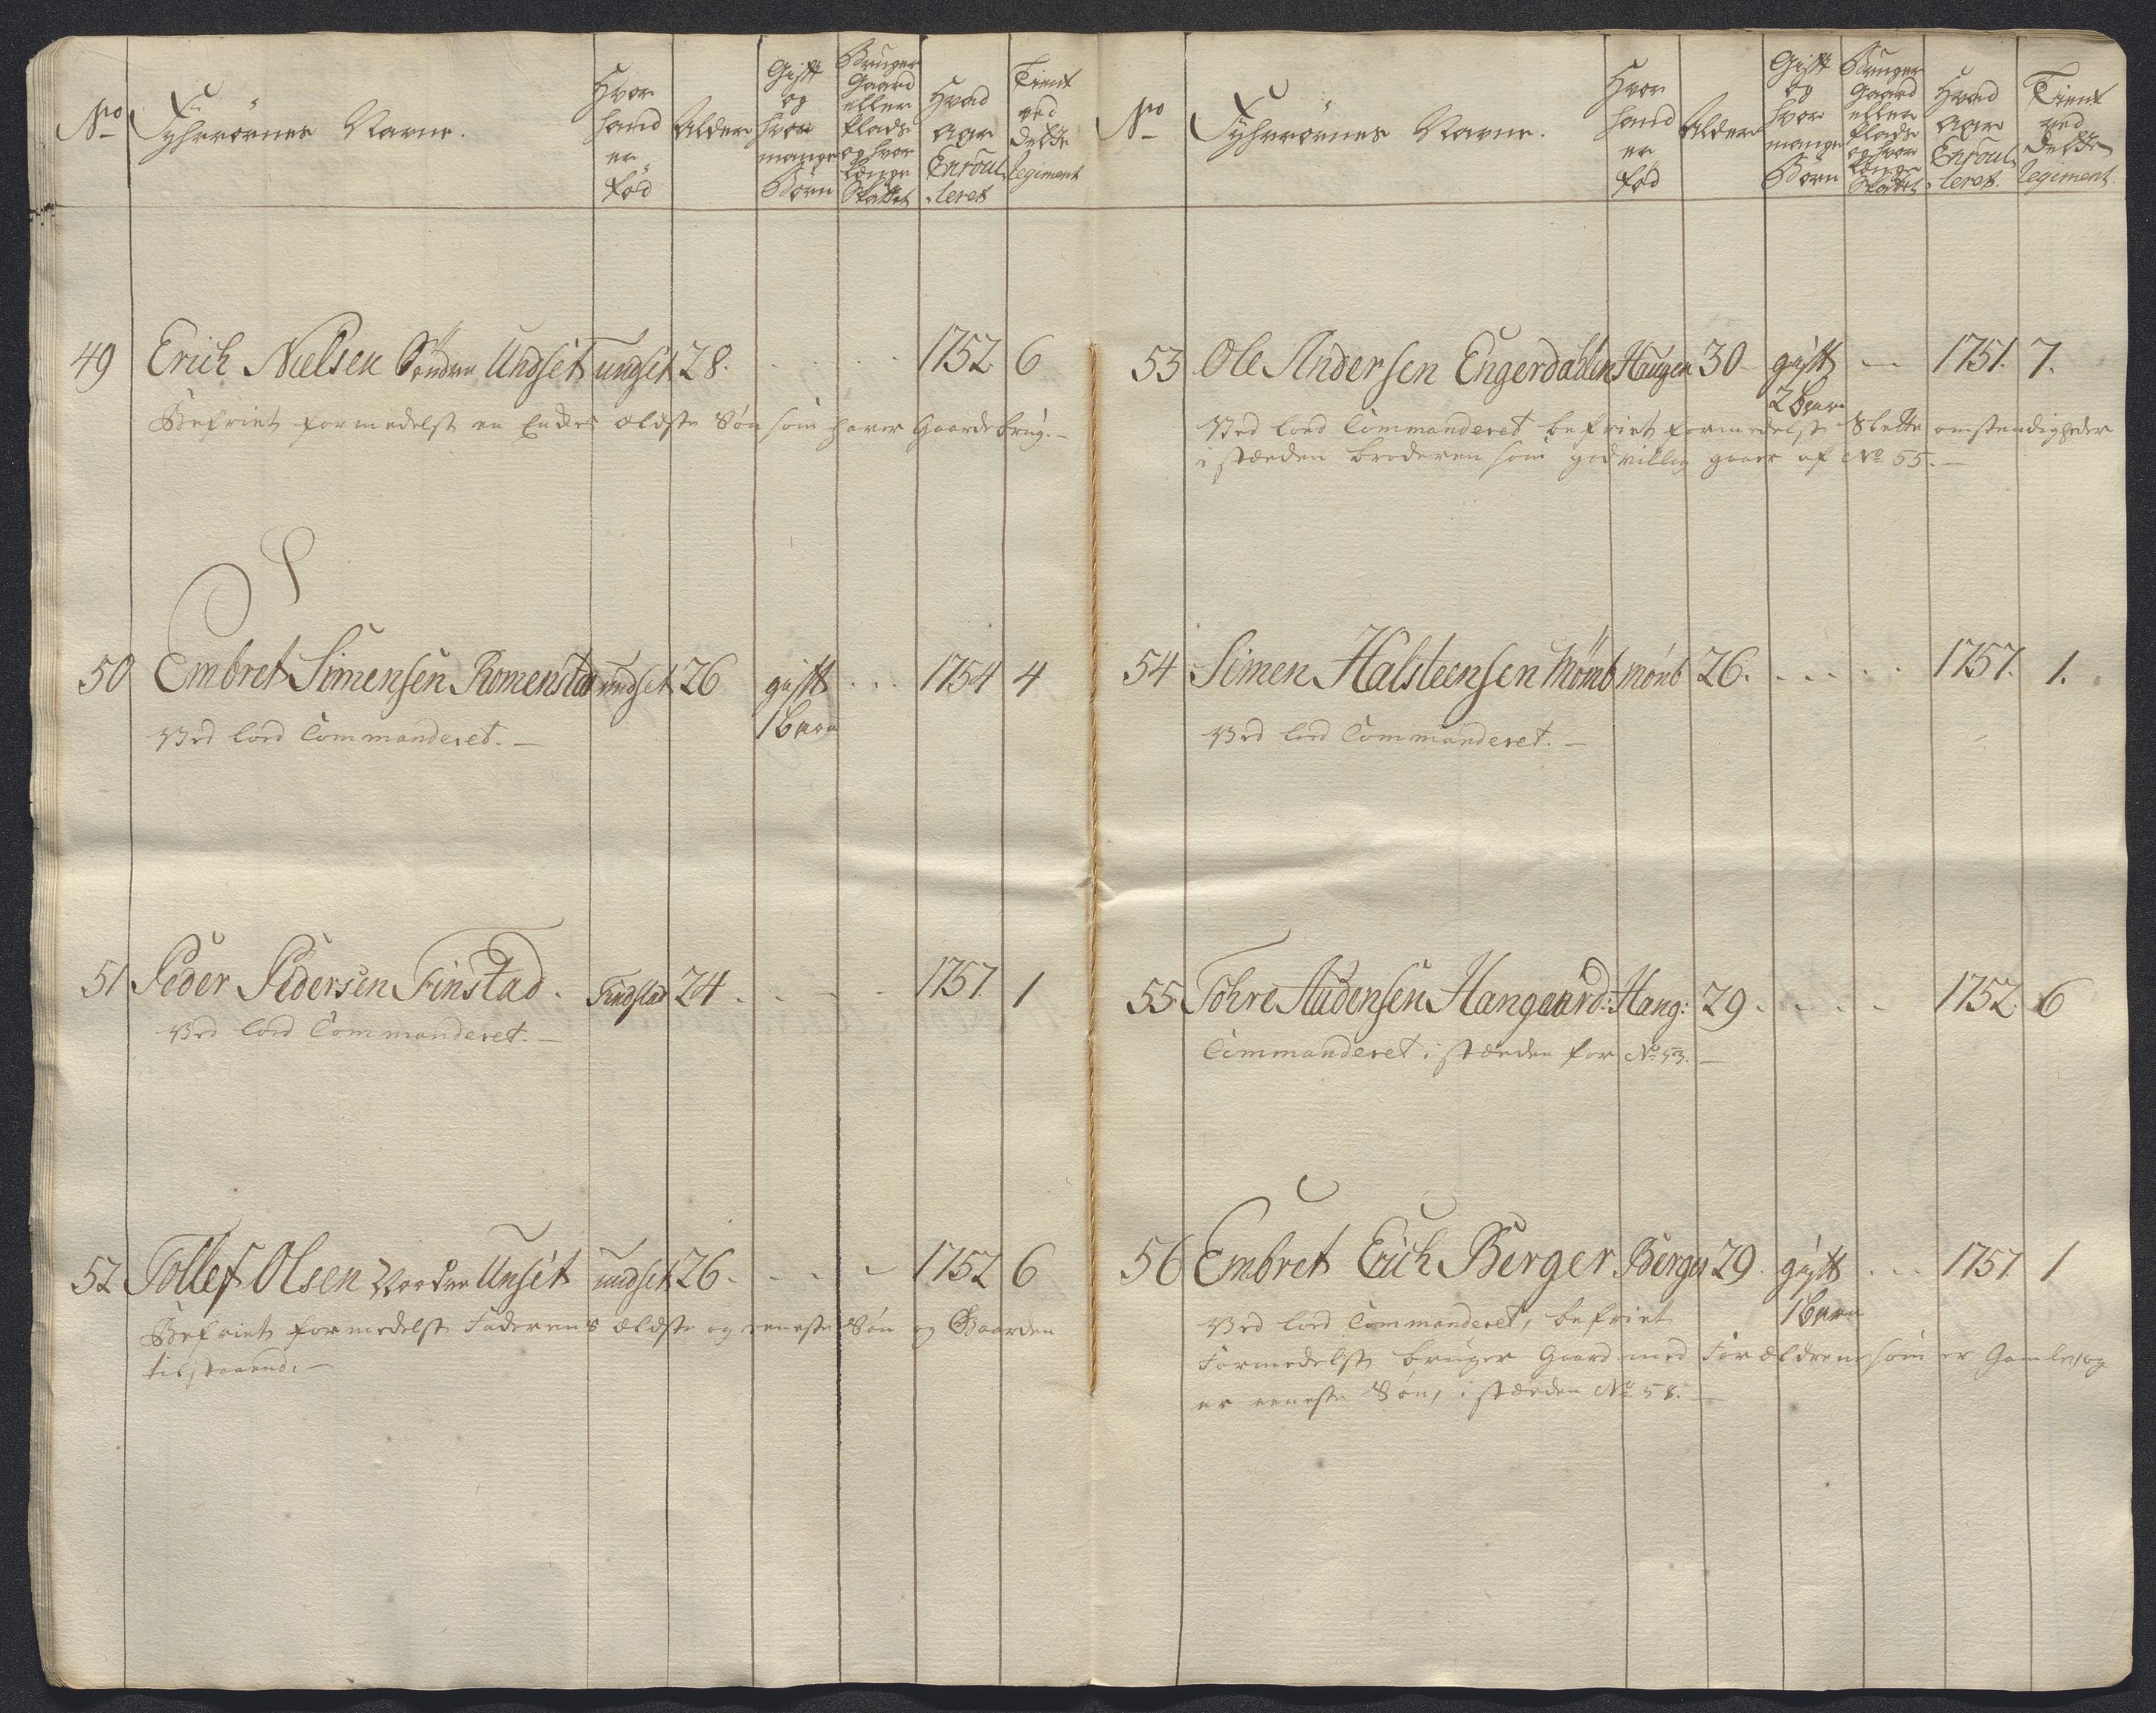 No
Tyhrörnes Navne.
Hvor
hand
er
föd
Alder
Gift
og
hvor
mange
Börn
Bruger
Gaard
eller
Plads
og hvor
længe
Skattet
Hvad
aar
Enroul
leret
Tient
ved
dette
Regiment
49 Erich Nielsen Söndre Undset undset 28. 1752 6
Befriet formedelst en Enkes ældste Søn som haver Gaardebrug. –
50 Embret Simensen Romenstad undset 26 gift 1754 4
1 barn
Ved Lord Commanderet. –
51 Peder Pedersen Finstad. Findstad 24 1757 1
Ved Lord Commanderet. –
52 Tollef Olsen Nordre Unset undset 26. 1752 6
Befriet formedelst Faderens ældste og eeneste Søn og Gaarden
tilstaaende –
No
Tyhrörnes Navne.
Hvor
hand
er
föd
Alder
Gift
og
hvor
mange
Börn
Bruger
Gaard
eller
Plads
og hvor
længe
Skattet
Hvad
aar
Enroul
leret.
Tient
ved
dette
Regiment.
53 Ole Andersen Engerdahlen Haugen 30 gift – 1751. 7.
2 barn
Ved Lord Commanderet befriet formedelst Slette omstendigheder
i stæden broderen som godvillig gaaer af No 55. –
54 Simen Halsteensen Mömb mömb 26. 1757. 1.
Ved Lord Commanderet. –
55 Tohre Audensen Hangaard: Hang: 29. 1752. 6
Commanderet i stæden for No 53. –
56 Embret Erich Berger Berger 29. gift 1757 1
1 barn
Ved Lord Commanderet, befriet
Formedelst bruger Gaard med Forældrene som er Gamle, og
er eeneste Søn, i stæden No 58. –